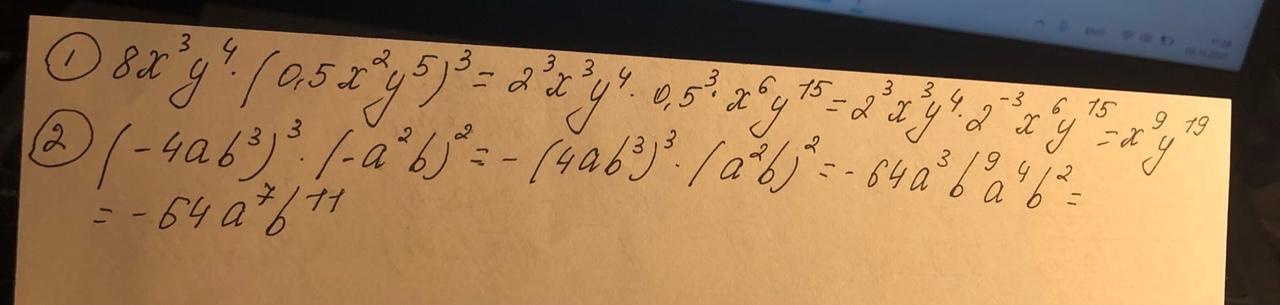 ① 8x³y⁴·(0,5x²y⁵)³=2³x³y⁴·0,5³·x⁶y¹⁵=2³x³y⁴·2⁻³x⁶y¹⁵=x⁹y¹⁹
② (-4ab³)³·(-a²b)²=-(4ab³)³·(a²b)²=-64a³b⁹a⁴b²=
=-64a⁷b¹¹